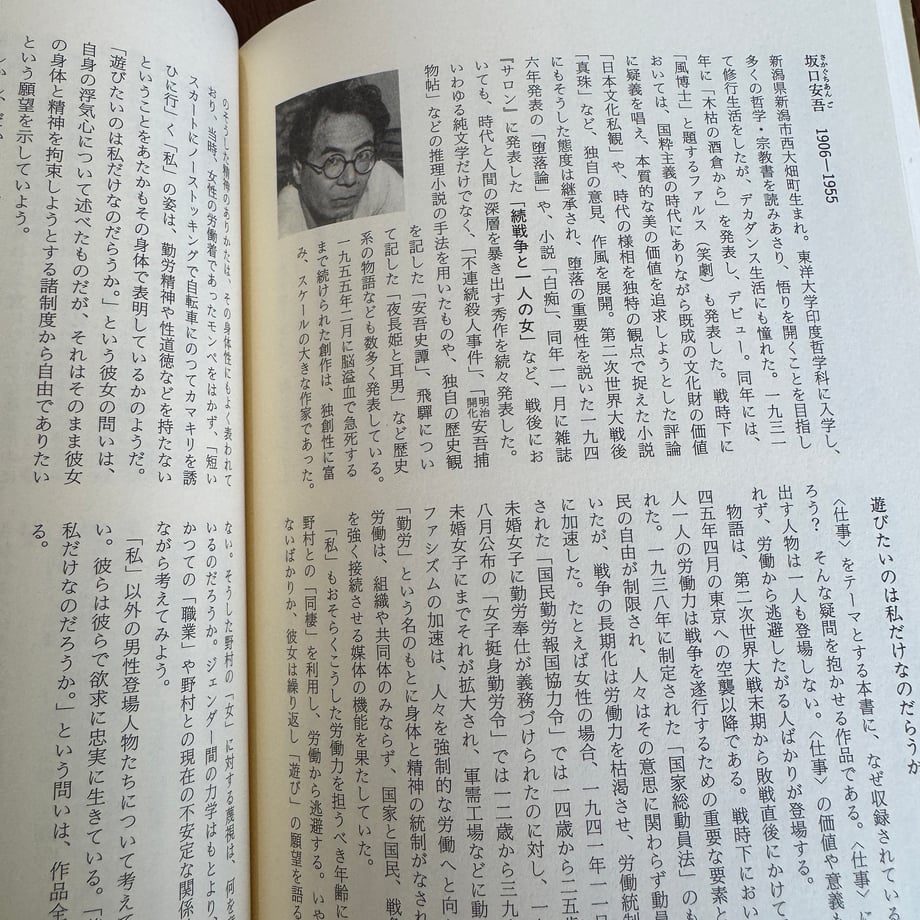 さかぐちあんご
坂口安吾　1906―1955
新潟県新潟市西大畑町生まれ。東洋大学印度哲学科に入学し、
多くの哲学・宗教書を読みあさり、悟りを開くことを目指し
て修行生活をしたが、デカダンス生活にも憧れた。一九三一
年に「木枯の酒倉から」を発表し、デビュー。同年には、
「風博士」と題するファルス（笑劇）も発表した。戦時下に
おいては、国粋主義の時代にありながら既成の文化財の価値
に疑義を唱え、本質的な美の価値を追求しようとした評論
「日本文化私観」や、時代の様相を独特の観点で捉えた小説
「真珠」など、独自の意見、作風を展開。第二次世界大戦後
にもそうした態度は継承され、堕落の重要性を説いた一九四
六年発表の「堕落論」や、小説「白痴」、同年一一月に雑誌
『サロン』に発表した「続戦争と一人の女」など、戦後にお
いても、時代と人間の深層を暴き出す秀作を続々発表した。
いわゆる純文学だけでなく、「不連続殺人事件」、「明治開化安吾捕
物帖」などの推理小説の手法を用いたものや、独自の歴史観
を記した「安吾史譚」、飛騨につい
て記した「夜長姫と耳男」など歴史
系の物語なども数多く発表している。
一九五五年二月に脳溢血で急死する
まで続けられた創作は、独創性に富
み、スケールの大きな作家であった。
遊びたいのは私だけなのだらうか
〈仕事〉をテーマとする本書に、なぜ収録されている
ろう？　そんな疑問を抱かせる作品である。〈仕事〉に
出す人物は一人も登場しない。〈仕事〉の価値や意義
れず、労働から逃避したがる人ばかりが登場する。
物語は、第二次世界大戦末期から敗戦直後にかけて
四五年四月の東京への空襲以降である。戦時下におい
人一人の労働力は戦争を遂行するための重要な要素と
れた。一九三八年に制定された「国家総動員法」のも
民の自由が制限され、人々はその意思に関わらず動員
いたが、戦争の長期化は労働力を枯渇させ、労働統制
に加速した。たとえば女性の場合、一九四一年一一
された「国民勤労報国協力令」では一四歳から二五歳
未婚女子に勤労奉仕が義務づけられたのに対し、一
八月公布の「女子挺身勤労令」では一二歳から三九
未婚女子にまでそれが拡大され、軍需工場などに動
ファシズムの加速は、人々を強制的な労働へと向
「勤労」という名のもとに身体と精神の統制がなされ
労働は、組織や共同体のみならず、国家と国民、戦争
を強く接続させる媒体の機能を果たしていた。
「私」もおそらくこうした労働力を担うべき年齢に
野村との「同棲」を利用し、労働から逃避する。いや
ないばかりか、彼女は繰り返し「遊び」の願望を語る
のそうした精神のありかたは、その身体性にもよく表われて
おり、当時、女性の労働着であったモンペをはかず、「短い
スカートにノーストッキングで自転車にのつてカマキリを誘
ひに行」く「私」の姿は、勤労精神や性道徳などを持たない
ということをあたかもその身体で表明しているかのようだ。
「遊びたいのは私だけなのだらうか。」という彼女の問いは、
自身の浮気心について述べたものだが、それはそのまま彼女
の身体と精神を拘束しようとする諸制度から自由でありたい
という願望を示していよう。
ない。そうした野村の「女」に対する蔑視は、何を
いるのだろうか。ジェンダー間の力学はもとより、
かつての「職業」や野村との現在の不安定な関係
ながら考えてみよう。
「私」以外の男性登場人物たちについて考えて
い。彼らは彼らで欲求に忠実に生きている。
私だけなのだろうか。」という問いは、作品全
る。